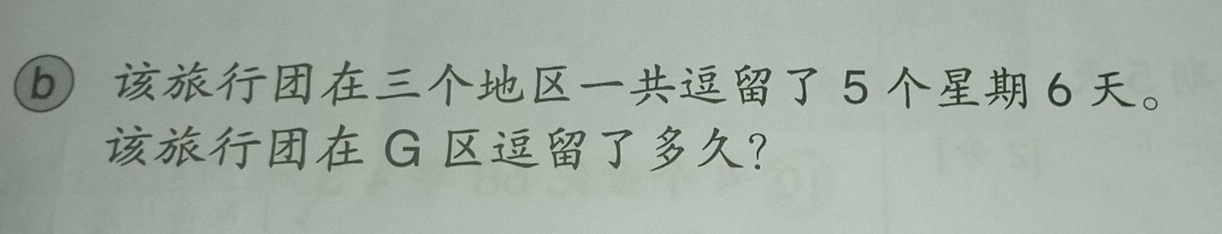 b 该旅行团在三个地区一共逗留了 5 个星期 6 天。
该旅行团在 G 区逗留了多久?